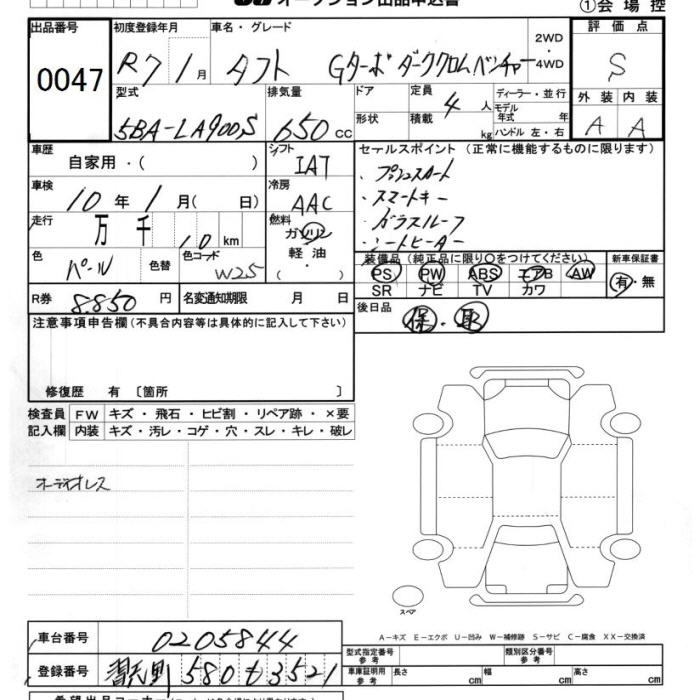 オークション出品申込書
①会場控
出品番号 初度登録年月 車名・グレード 評価点
0047 R7 1月 タフト Gターボ ダーククロムベンチャー 2WD・4WD S
型式 排気量 ドア 定員 4人 ディーラー・並行 外装 内装
5BA-LA900S 650cc 形状 積載 kg モデル年式 年 ハンドル 左・右 A A
車歴 自家用・( ) シフト IAT セールスポイント (正常に機能するものに限ります)
車検 10年 1月( 日) 冷房 AAC ・プッシュスタート
・スマートキー
走行 万 千 10 km 燃料 ガソリン ・ガラスルーフ
軽油 ・シートヒーター
・( )
色 パール 色替 色コード W25 装備品 (純正品に限り○をつけてください) 新車保証書
PS PW ABS エアB AW 有・無
SR ナビ TV カワ
R券 8.850円 名変通知期限 月 日 後日品
保・取
注意事項申告欄(不具合内容等は具体的に記入して下さい)
修復歴 有 〔箇所 〕
検査員 FW キズ・飛石・ヒビ割・リペア跡・×要
記入欄 内装 キズ・汚レ・コゲ・穴・スレ・キレ・破レ
オーディオレス
スペア
A－キズ E－エクボ U－凹み W－補修跡 S－サビ C－腐食 XX－交換済
車台番号 0205844
型式指定番号 参考 類別区分番号 参考
登録番号 習志野 580 も 3521
車庫証明用 参考 長さ cm 幅 cm 高さ cm